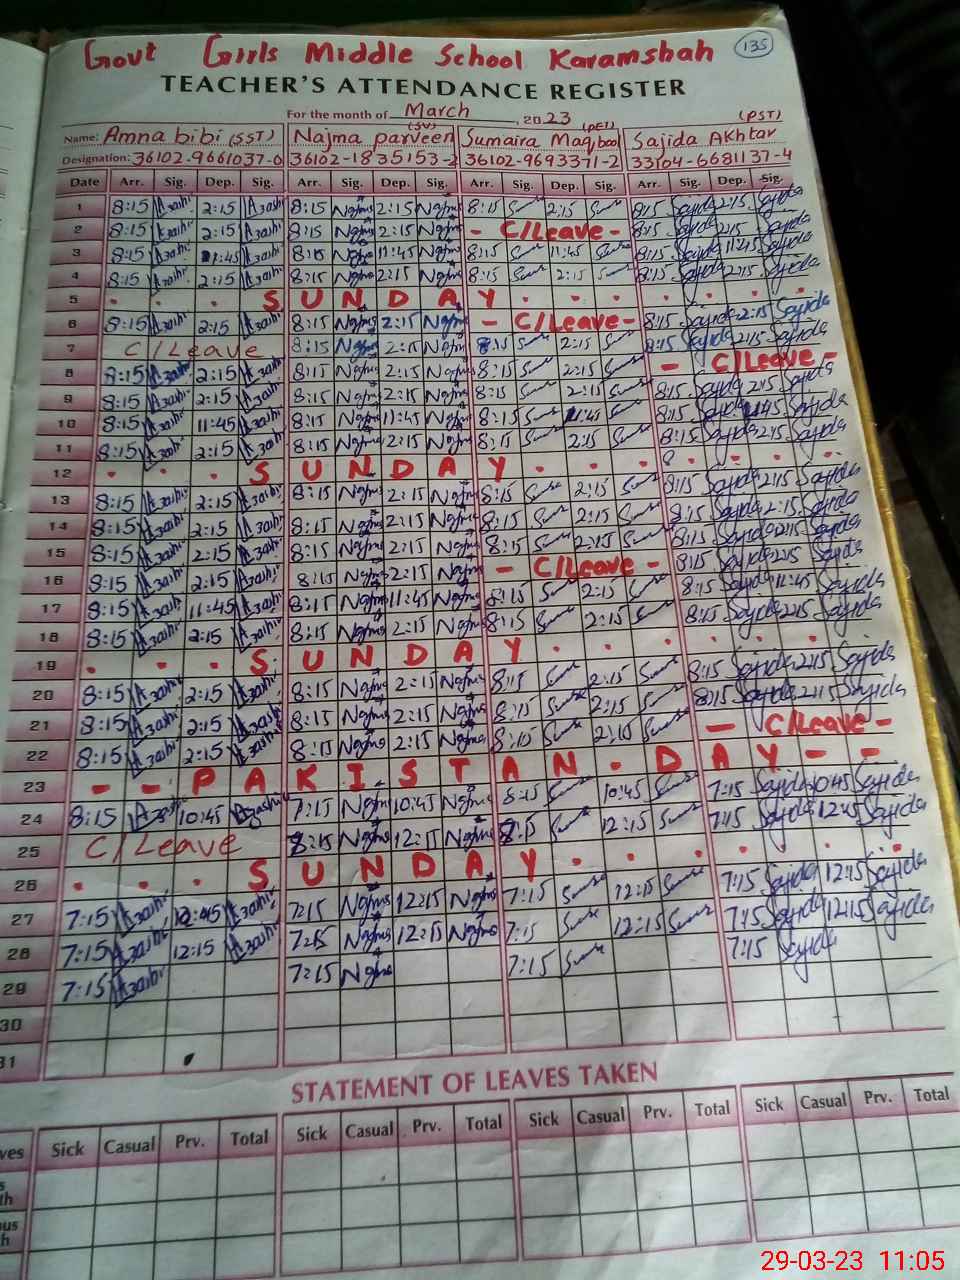 Govt Girls Middle School Karamshah 135
TEACHER'S ATTENDANCE REGISTER
For the month of March, 2023
Name: Amna bibi (SST) Najma parveen (SV) Sumaira Maqbool (PET) Sajida Akhtar (PST)
Designation: 36102-9661037-0 36102-1835153-2 36102-9693371-2 33104-6681137-4
Date Arr. Sig. Dep. Sig. Arr. Sig. Dep. Sig. Arr. Sig. Dep. Sig. Arr. Sig. Dep. Sig.
1 8:15 2:15 8:15 Najma 2:15 Najma 8:15 2:15 8:15 Sajida 2:15 Sajida
2 8:15 2:15 8:15 Najma 2:15 Najma - C/Leave - 8:15 Sajida 2:15 Sajida
3 8:15 11:45 8:15 Najma 11:45 Najma 8:15 11:45 8:15 Sajida 11:45 Sajida
4 8:15 2:15 8:15 Najma 2:15 Najma 8:15 2:15 8:15 Sajida 2:15 Sajida
5 SUNDAY
6 8:15 2:15 8:15 Najma 2:15 Najma - C/Leave - 8:15 Sajida 2:15 Sajida
7 C/Leave 8:15 Najma 2:15 Najma 8:15 2:15 8:15 Sajida 2:15 Sajida
8 8:15 2:15 8:15 Najma 2:15 Najma 8:15 2:15 - C/Leave -
9 8:15 2:15 8:15 Najma 2:15 Najma 8:15 2:15 8:15 Sajida 2:15 Sajida
10 8:15 11:45 8:15 Najma 11:45 Najma 8:15 11:45 8:15 Sajida 11:45 Sajida
11 8:15 2:15 8:15 Najma 2:15 Najma 8:15 2:15 8:15 Sajida 2:15 Sajida
12 SUNDAY 8
13 8:15 2:15 8:15 Najma 2:15 Najma 8:15 2:15 8:15 Sajida 2:15 Sajida
14 8:15 2:15 8:15 Najma 2:15 Najma 8:15 2:15 8:15 Sajida 2:15 Sajida
15 8:15 2:15 8:15 Najma 2:15 Najma 8:15 2:15 8:15 Sajida 2:15 Sajida
16 8:15 2:15 8:15 Najma 2:15 Najma - C/Leave - 8:15 Sajida 2:15 Sajida
17 8:15 11:45 8:15 Najma 11:45 Najma 8:15 2:15 8:15 Sajida 11:45 Sajida
18 8:15 2:15 8:15 Najma 2:15 Najma 8:15 2:15 8:15 Sajida 2:15 Sajida
19 SUNDAY
20 8:15 2:15 8:15 Najma 2:15 Najma 8:15 2:15 8:15 Sajida 2:15 Sajida
21 8:15 2:15 8:15 Najma 2:15 Najma 8:15 2:15 8:15 Sajida 2:15 Sajida
22 8:15 2:15 8:15 Najma 2:15 Najma 8:15 2:15 - C/Leave -
23 - - PAKISTAN - DAY - -
24 8:15 10:45 7:15 Najma 10:45 Najma 8:15 10:45 7:15 Sajida 10:45 Sajida
25 C/Leave 8:15 Najma 12:15 Najma 8:15 12:15 7:15 Sajida 12:15 Sajida
26 SUNDAY
27 7:15 12:45 7:15 Najma 12:15 Najma 7:15 12:15 7:15 Sajida 12:15 Sajida
28 7:15 12:15 7:15 Najma 12:15 Najma 7:15 12:15 7:15 Sajida 12:15 Sajida
29 7:15 7:15 Najma 7:15 7:15 Sajida
30
31
STATEMENT OF LEAVES TAKEN
Sick Casual Prv. Total Sick Casual Prv. Total Sick Casual Prv. Total Sick Casual Prv. Total
29-03-23 11:05